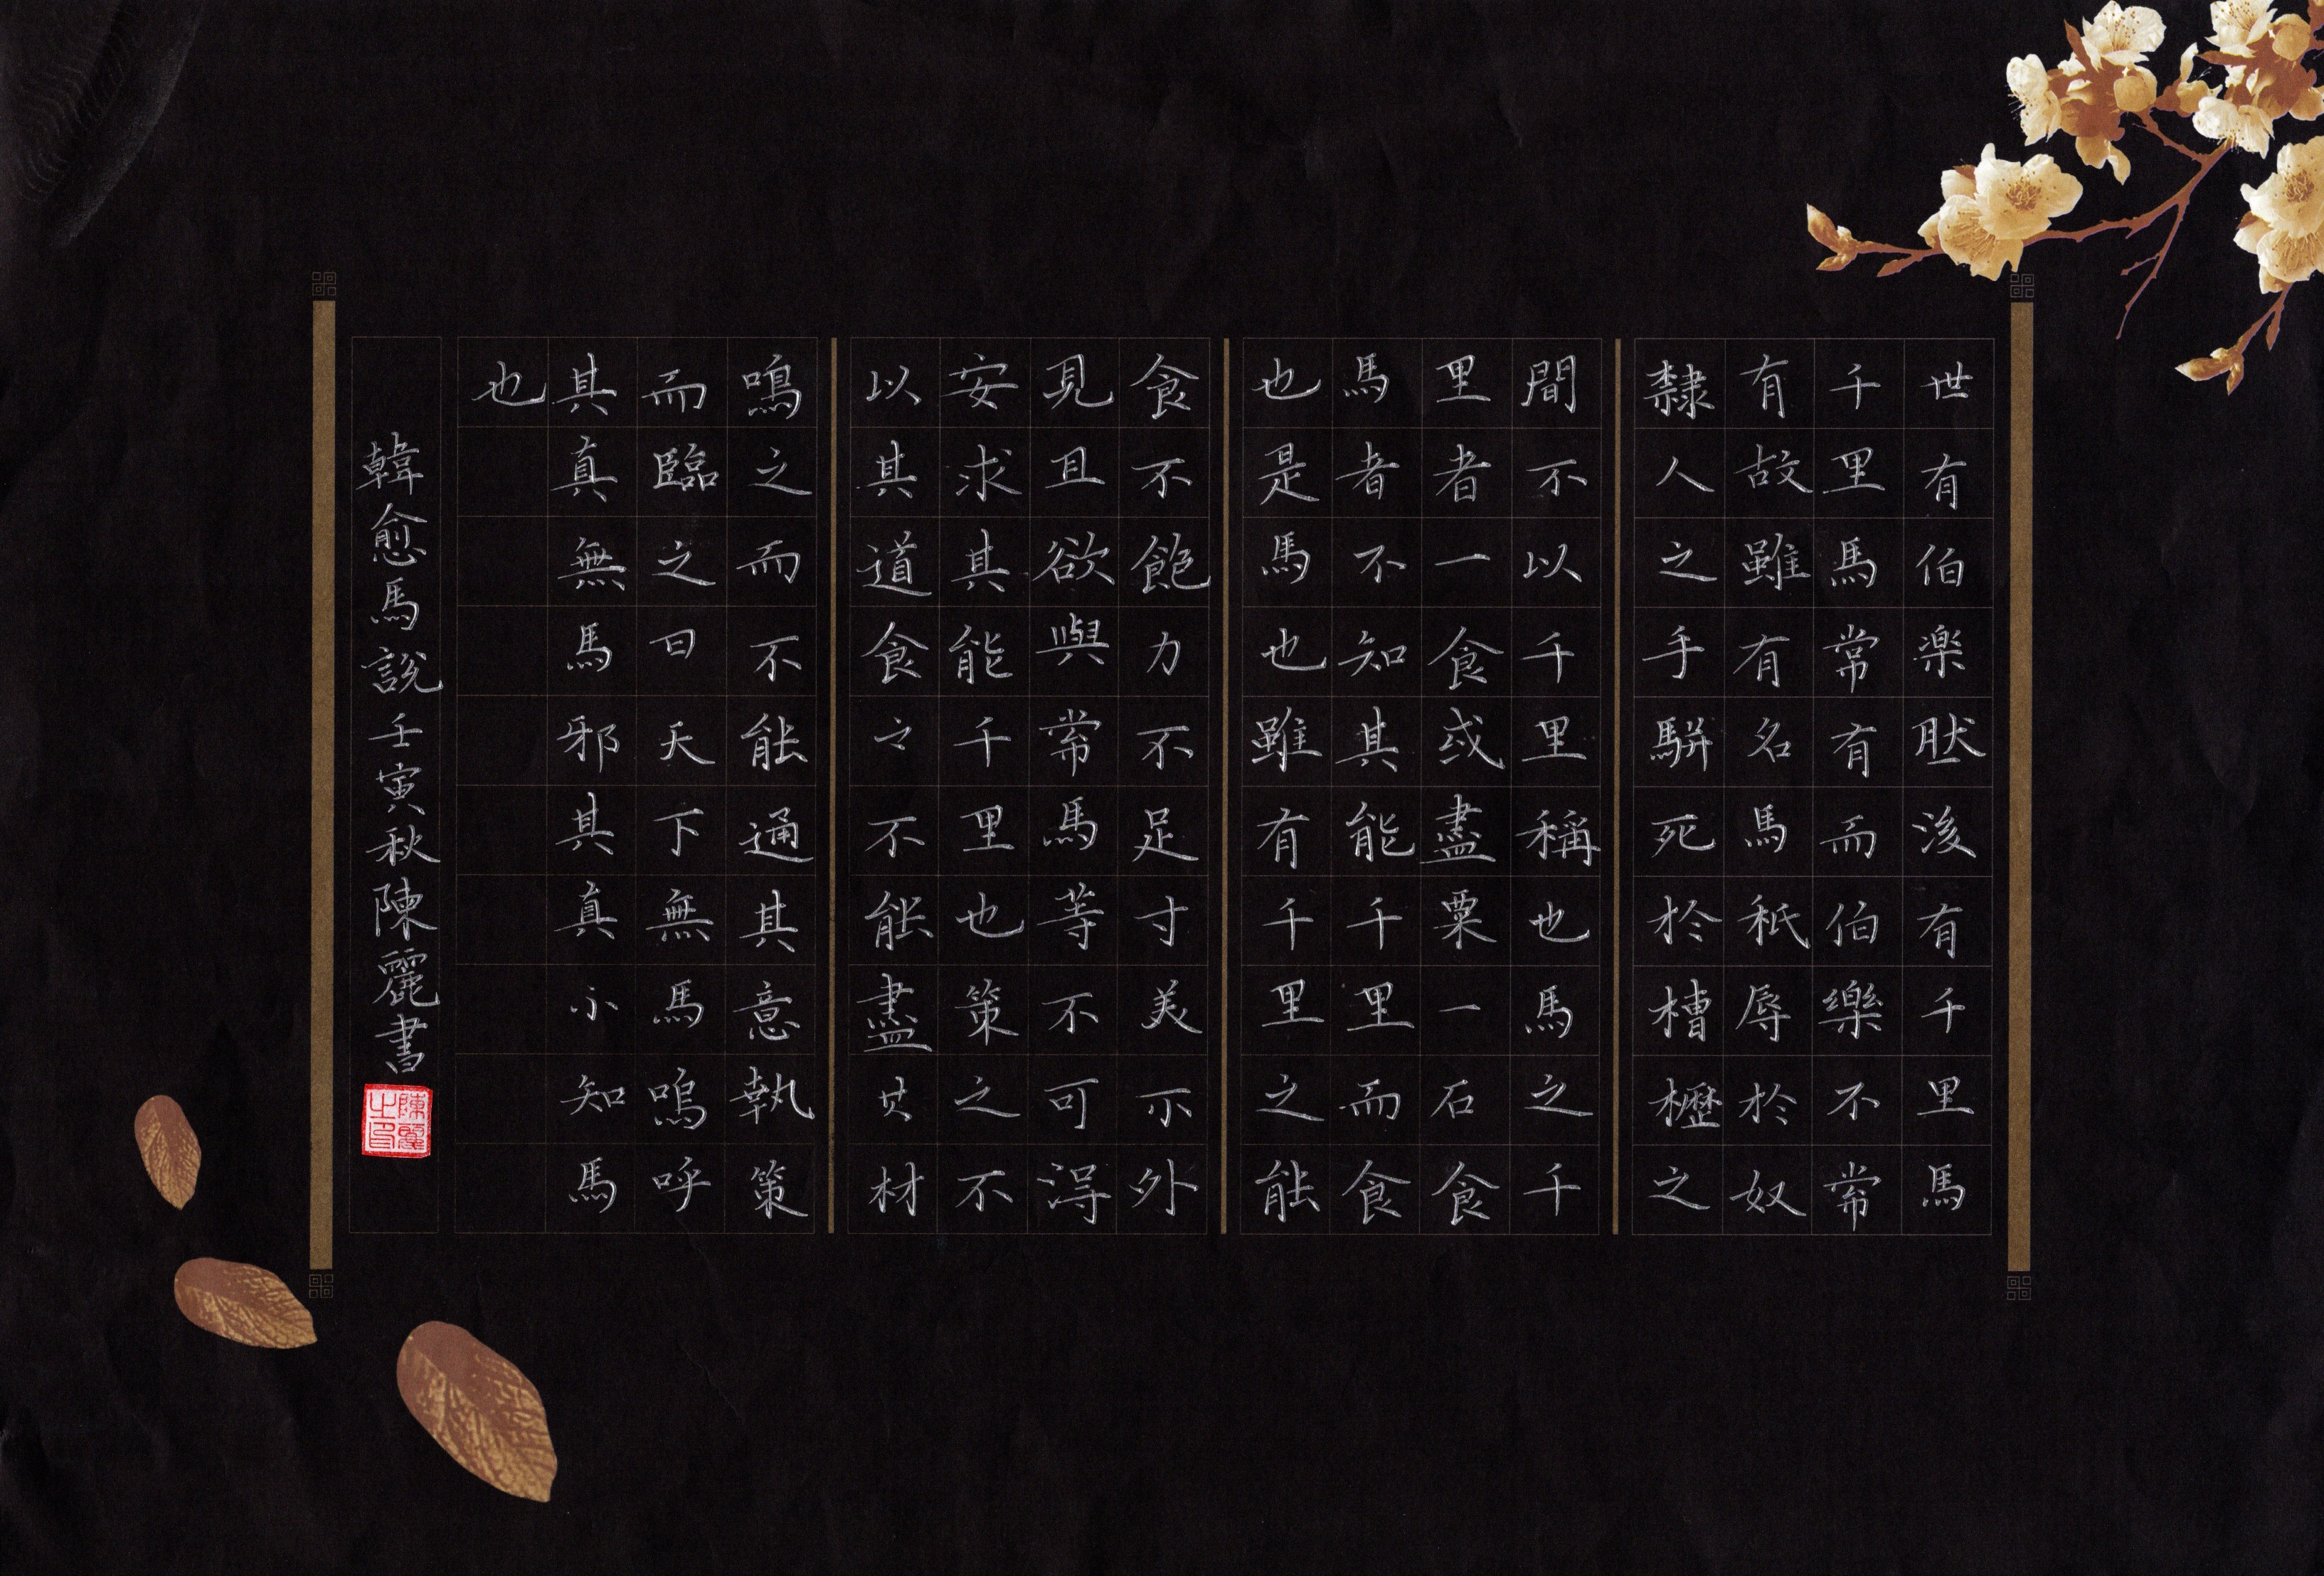 世有伯楽肰後有千里馬
千里馬常有而伯樂不常
有故雖有名馬秖辱於奴
隸人之手駢死於槽櫪之
間不以千里稱也馬之千
里者一食或盡粟一石食
馬者不知其能千里而食
也是馬也雖有千里之能
食不飽力不足才美不外
見且欲與常馬等不可得
安求其能千里也策之不
以其道食々不能盡其材
鳴之而不能通其意執策
而臨之曰天下無馬嗚呼
其真無馬邪其真不知馬
也
韓愈馬說壬寅秋陳麗書
陳麗之印